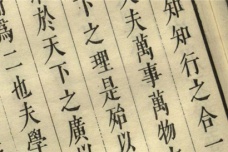 知知行之合一
夫萬事萬物
之理是殆以
於天下之廣以
爲二也夫學